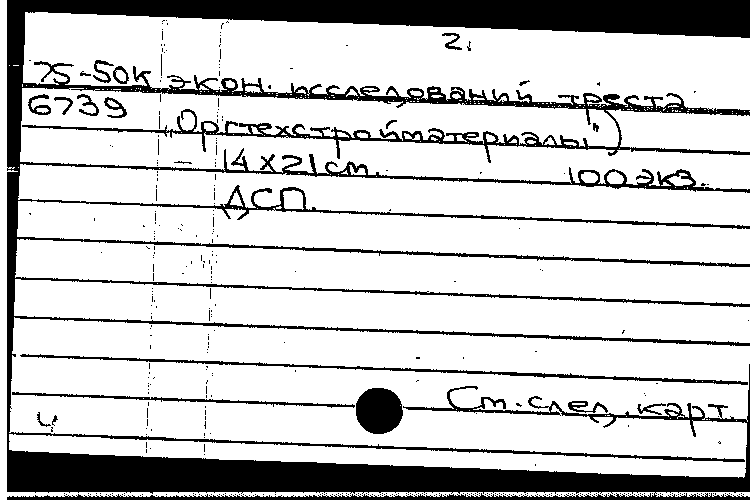 2.
75-50к экон. исследований треста
6739 „Оргтехстройматериалы")
– 14 х 21 см. 100 экз.
ДСП.
См. след. карт.
4